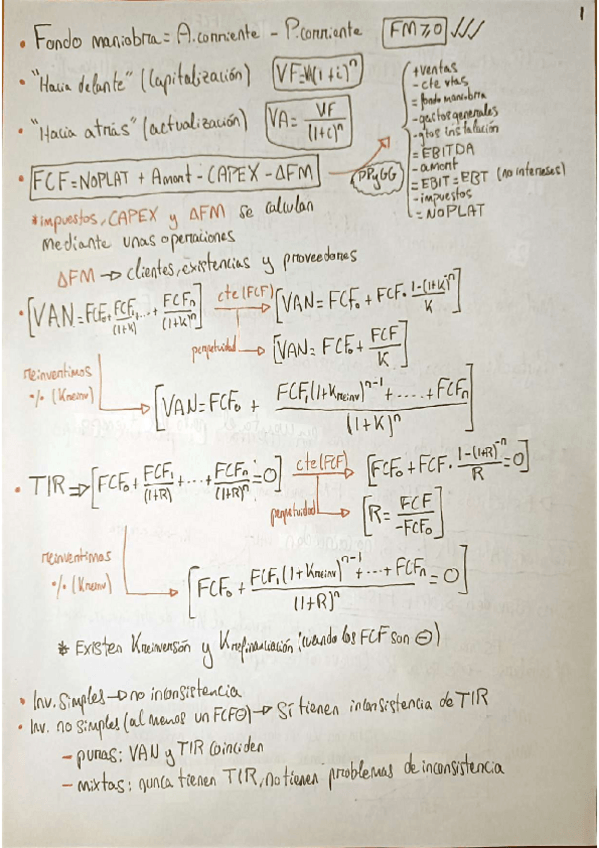 1
• Fondo maniobra = A.corriente - P.corriente FM≥0 ✓✓✓
• "Hacia delante" (Capitalización) VF=VA(1+i)^n
• "Hacia atrás" (actualización) VA= VF/(1+i)^n
• FCF=NOPLAT + Amort - CAPEX - ΔFM
PPyGG
+ventas
- cte vtas
= fondo maniobra
- gastos generales
- gtos instalación
= EBITDA
- amort
= EBIT = EBT (no intereses)
- impuestos
= NOPLAT
*impuestos, CAPEX y ΔFM se calculan
mediante unas operaciones
ΔFM → clientes, existencias y proveedores
• [VAN=FCF₀+FCF₁/(1+K)+...+FCFn/(1+K)^n] cte(FCF) → [VAN=FCF₀+FCF·1-(1+K)^-n/K]
perpetuidad → [VAN=FCF₀+FCF/K]
Reinvertimos
% (Kreinv)
→ [VAN=FCF₀ + FCF₁(1+Kreinv)^n-1+.....+FCFn/(1+K)^n]
• TIR ⇒ [FCF₀+FCF₁/(1+R)+...+FCFn/(1+R)^n=0] cte(FCF) → [FCF₀+FCF·1-(1+R)^-n/R=0]
perpetuidad → [R=FCF/-FCF₀]
Reinvertimos
% (Kreinv)
→ [FCF₀+FCF₁(1+Kreinv)^n-1+...+FCFn/(1+R)^n=0]
* Existen Kreinversión y Krefinanciación (cuando los FCF son ⊖)
• Inv. Simples → no inconsistencia
• Inv. no simples (al menos un FCF⊖) → Sí tienen inconsistencia de TIR
- puras: VAN y TIR coinciden
- mixtas: nunca tienen TIR, no tienen problemas de inconsistencia